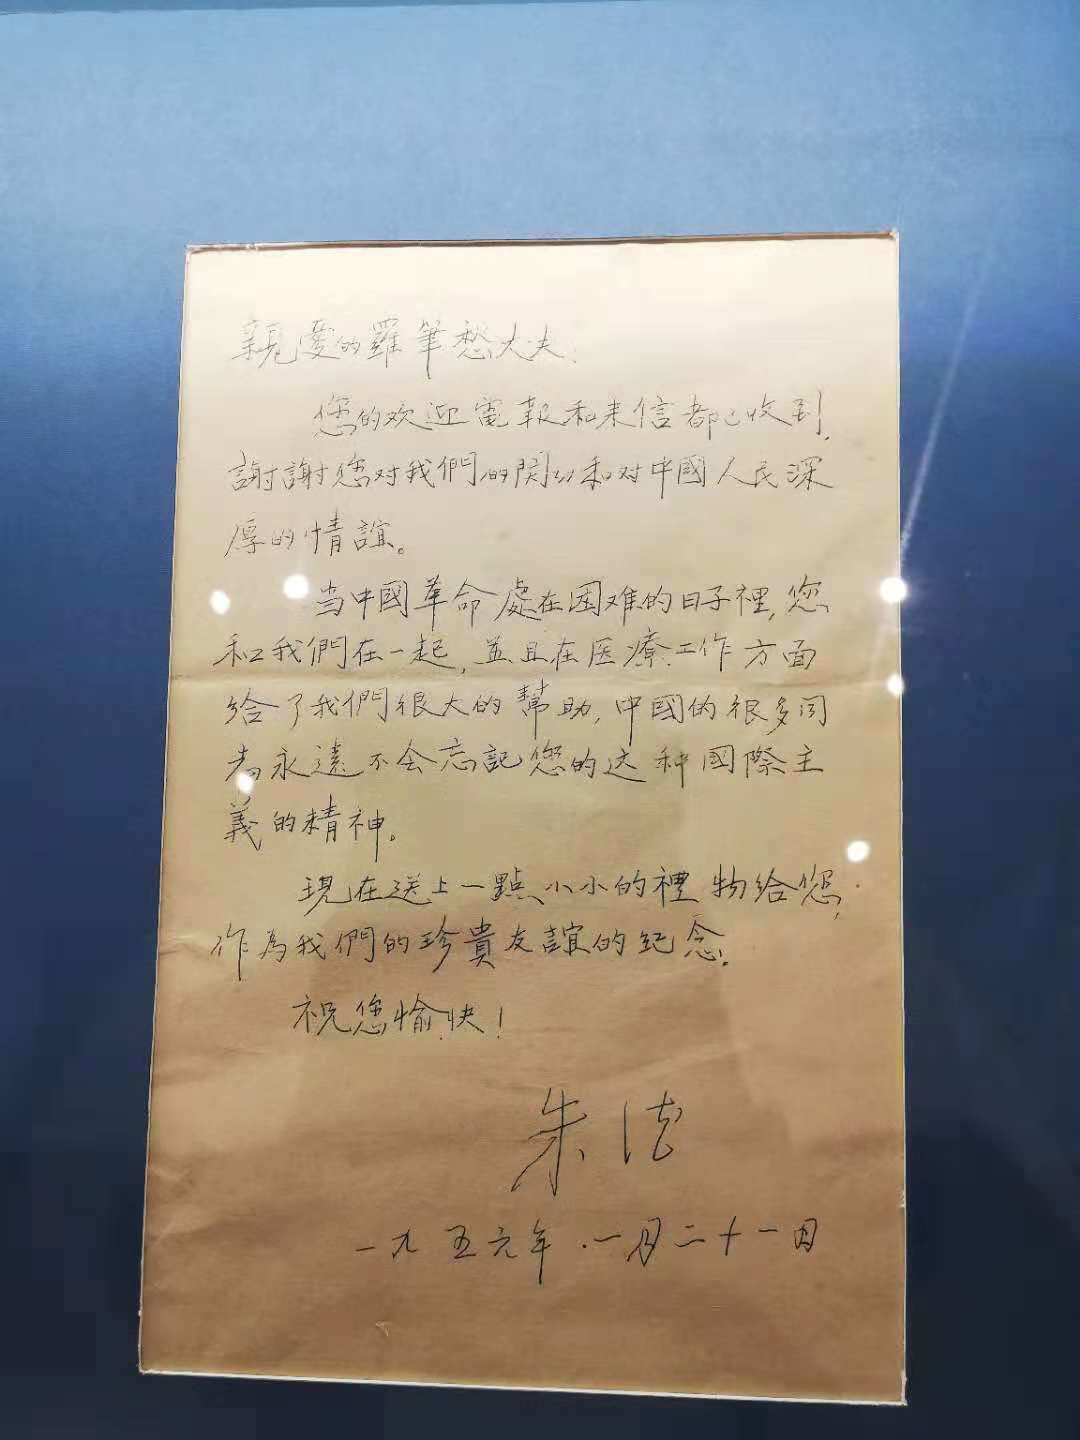 親爱的羅筆愁大夫：
您的欢迎電報和来信都已收到，
謝謝您对我們的関心和对中國人民深
厚的情誼。
当中國革命處在困难的日子裡，您
和我們在一起，並且在医療工作方面
给了我們很大的幫助，中國的很多同
志永遠不会忘記您的这种國際主
義的精神。
現在送上一點小小的禮物给您，
作為我們的珍貴友誼的紀念。
祝您愉快！
朱德
一九五六年．一月二十一日